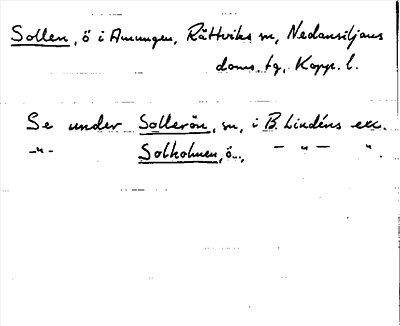 Sollen, ö i Amungen, Rättviks sn, Nedansiljans
doms. tg, Kopp. l.
Se under Sollerön, sn, i B. Lindéns exc.
–"– Solholmen, ö.., – " – ".